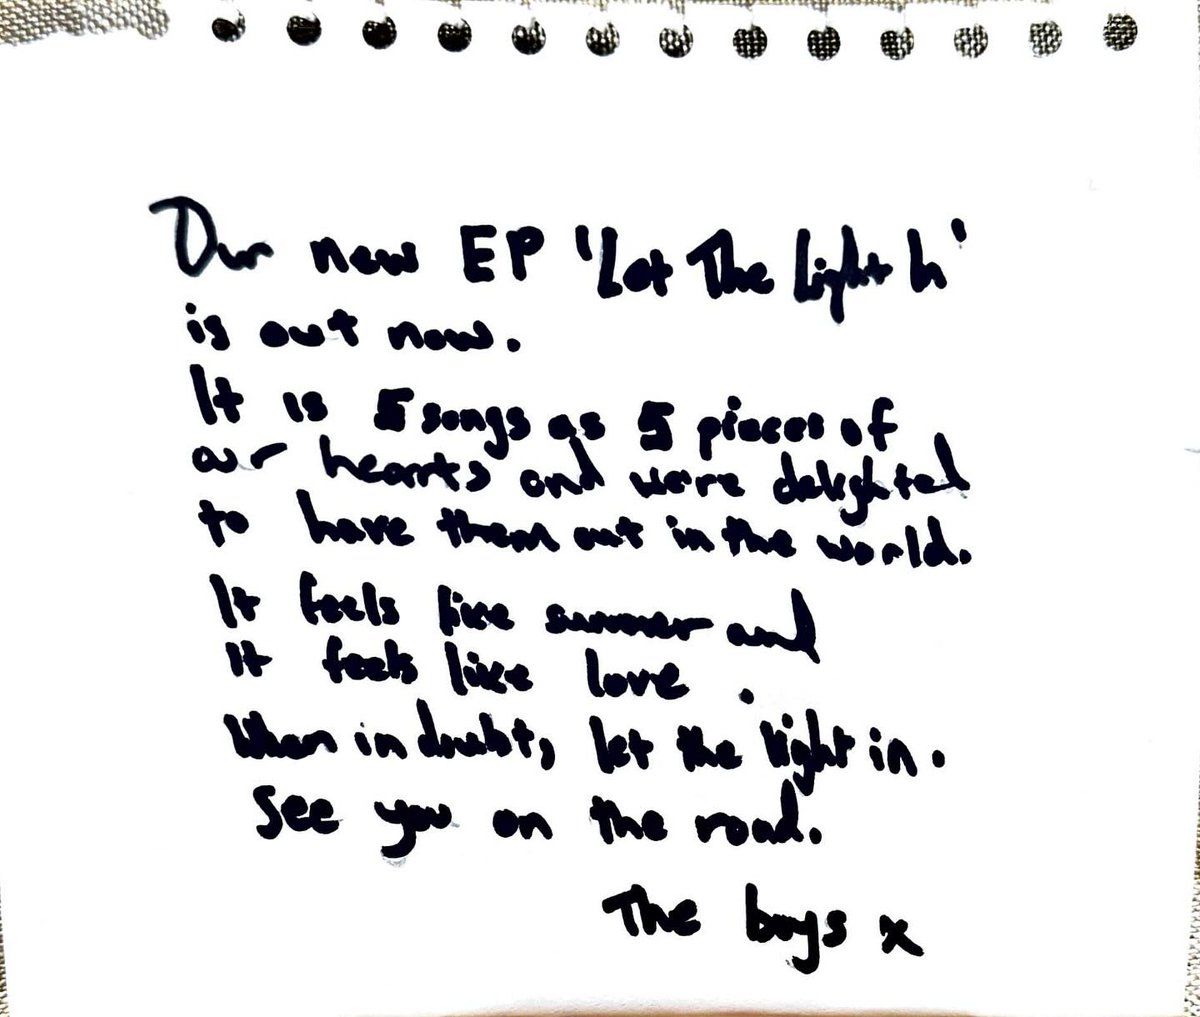 Our new EP 'Let The Light In'
is out now.
It is 5 songs as 5 pieces of
our hearts and we're delighted
to have them out in the world.
It feels like summer and
it feels like love.
When in doubt, let the light in.
See you on the road.
The boys x